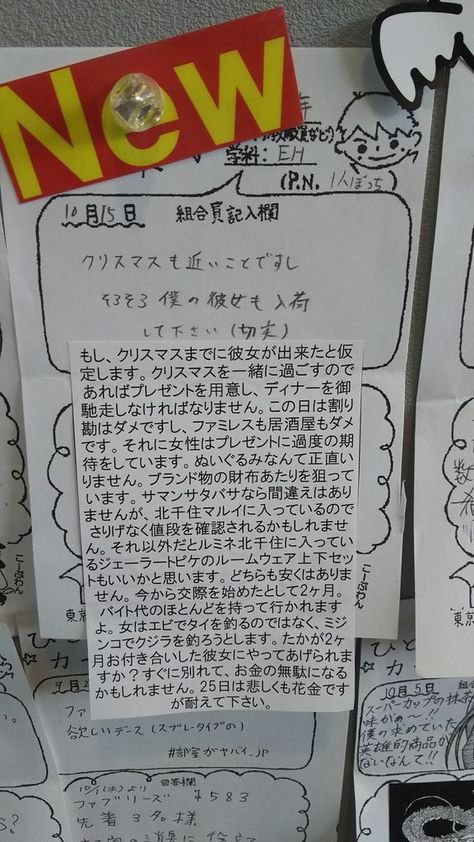 New
年
学科: EH
(P.N. 1人ぼっち)
10月15日 組合員記入欄
クリスマスも近いことですし
そろそろ僕の彼女も入荷
して下さい(切実)
もし、クリスマスまでに彼女が出来たと仮
定します。クリスマスを一緒に過ごすので
あればプレゼントを用意し、ディナーを御
馳走しなければなりません。この日は割り
勘はダメですし、ファミレスも居酒屋もダメ
です。それに女性はプレゼントに過度の期
待をしています。ぬいぐるみなんて正直い
りません。ブランド物の財布あたりを狙って
います。サマンサタバサなら間違えはあり
ませんが、北千住マルイに入っているので
さりげなく値段を確認されるかもしれませ
ん。それ以外だとルミネ北千住に入ってい
るジェーラートピケのルームウェア上下セッ
トもいいかと思います。どちらも安くはありま
せん。今から交際を始めたとして2ヶ月。
バイト代のほとんどを持って行かれます
よ。女はエビでタイを釣るのではなく、ミジ
ンコでクジラを釣ろうとします。たかが2ヶ
月お付き合いした彼女にやってあげられま
すか?すぐに別れて、お金の無駄になる
かもしれません。25日は悲しくも花金です
が耐えて下さい。
こーぷわん
こーぷわん
東京
東京
欲しいデス(スプレータイプの)
#部室がヤバイ.jp
回答欄
ファブリーズ ¥583
先着3名様
10月5日
スーパーカップの抹茶
味かぁ〜!!
僕の求めていた
英雄的商品が
ないなんて!!